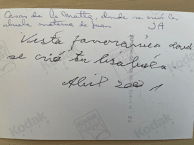 Casa de la Matta, donde se crió la
abuela materna de Juan
JA
Vista panorámica donde
se crió tu bisabuela
Abril 2001
Kodak
Kodak
Kodak